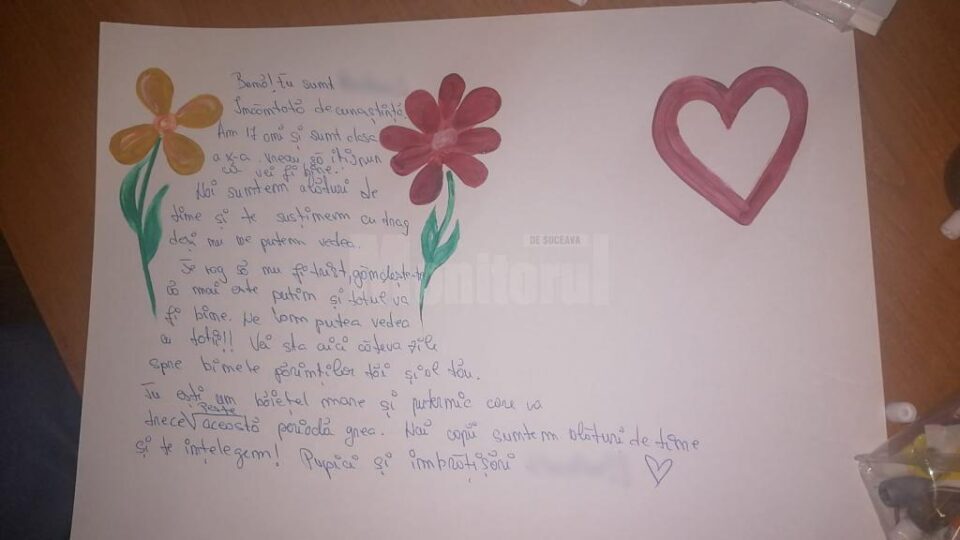 Bună! Eu sunt
Încântată de cunoștință,
Am 17 ani și sunt clasa
a x-a. vreau să îți spun
că vei fi bine..
Noi suntem alături de
tine și te susținem cu drag
deși nu ne putem vedea.
Te rog să nu fi trist, gândește-te
că mai este puțin și totul va
fi bine. Ne vom putea vedea
cu toții!! Vei sta aici câteva zile
spre binele părinților tăi și al tău.
Tu ești un băiețel mare și puternic care va
trece peste această perioadă grea. Noi copii suntem alături de tine
și te înțelegem! Pupici și îmbrățișări
Monitorul
DE SUCEAVA